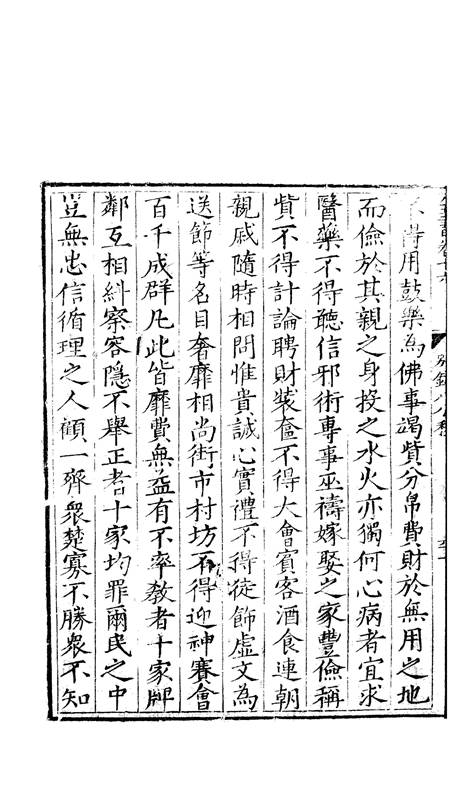 不得用鼓樂為佛事竭貲分帛費財於無用之地
而儉於其親之身投之水火亦獨何心病者宜求
醫藥不得聽信邪術專事巫禱嫁娶之家豐儉稱
貲不得計論聘財裝奩不得大會賓客酒食連朝
親戚隨時相問惟貴誠心實禮不得徒飾虛文為
送節等名目奢靡相尚街市村坊不得迎神賽會
百千成群凡此皆靡費無益有不率教者十家牌
鄰互相糾察容隱不舉正者十家均罪爾民之中
豈無忠信循理之人顧一齊衆楚寡不勝衆不知